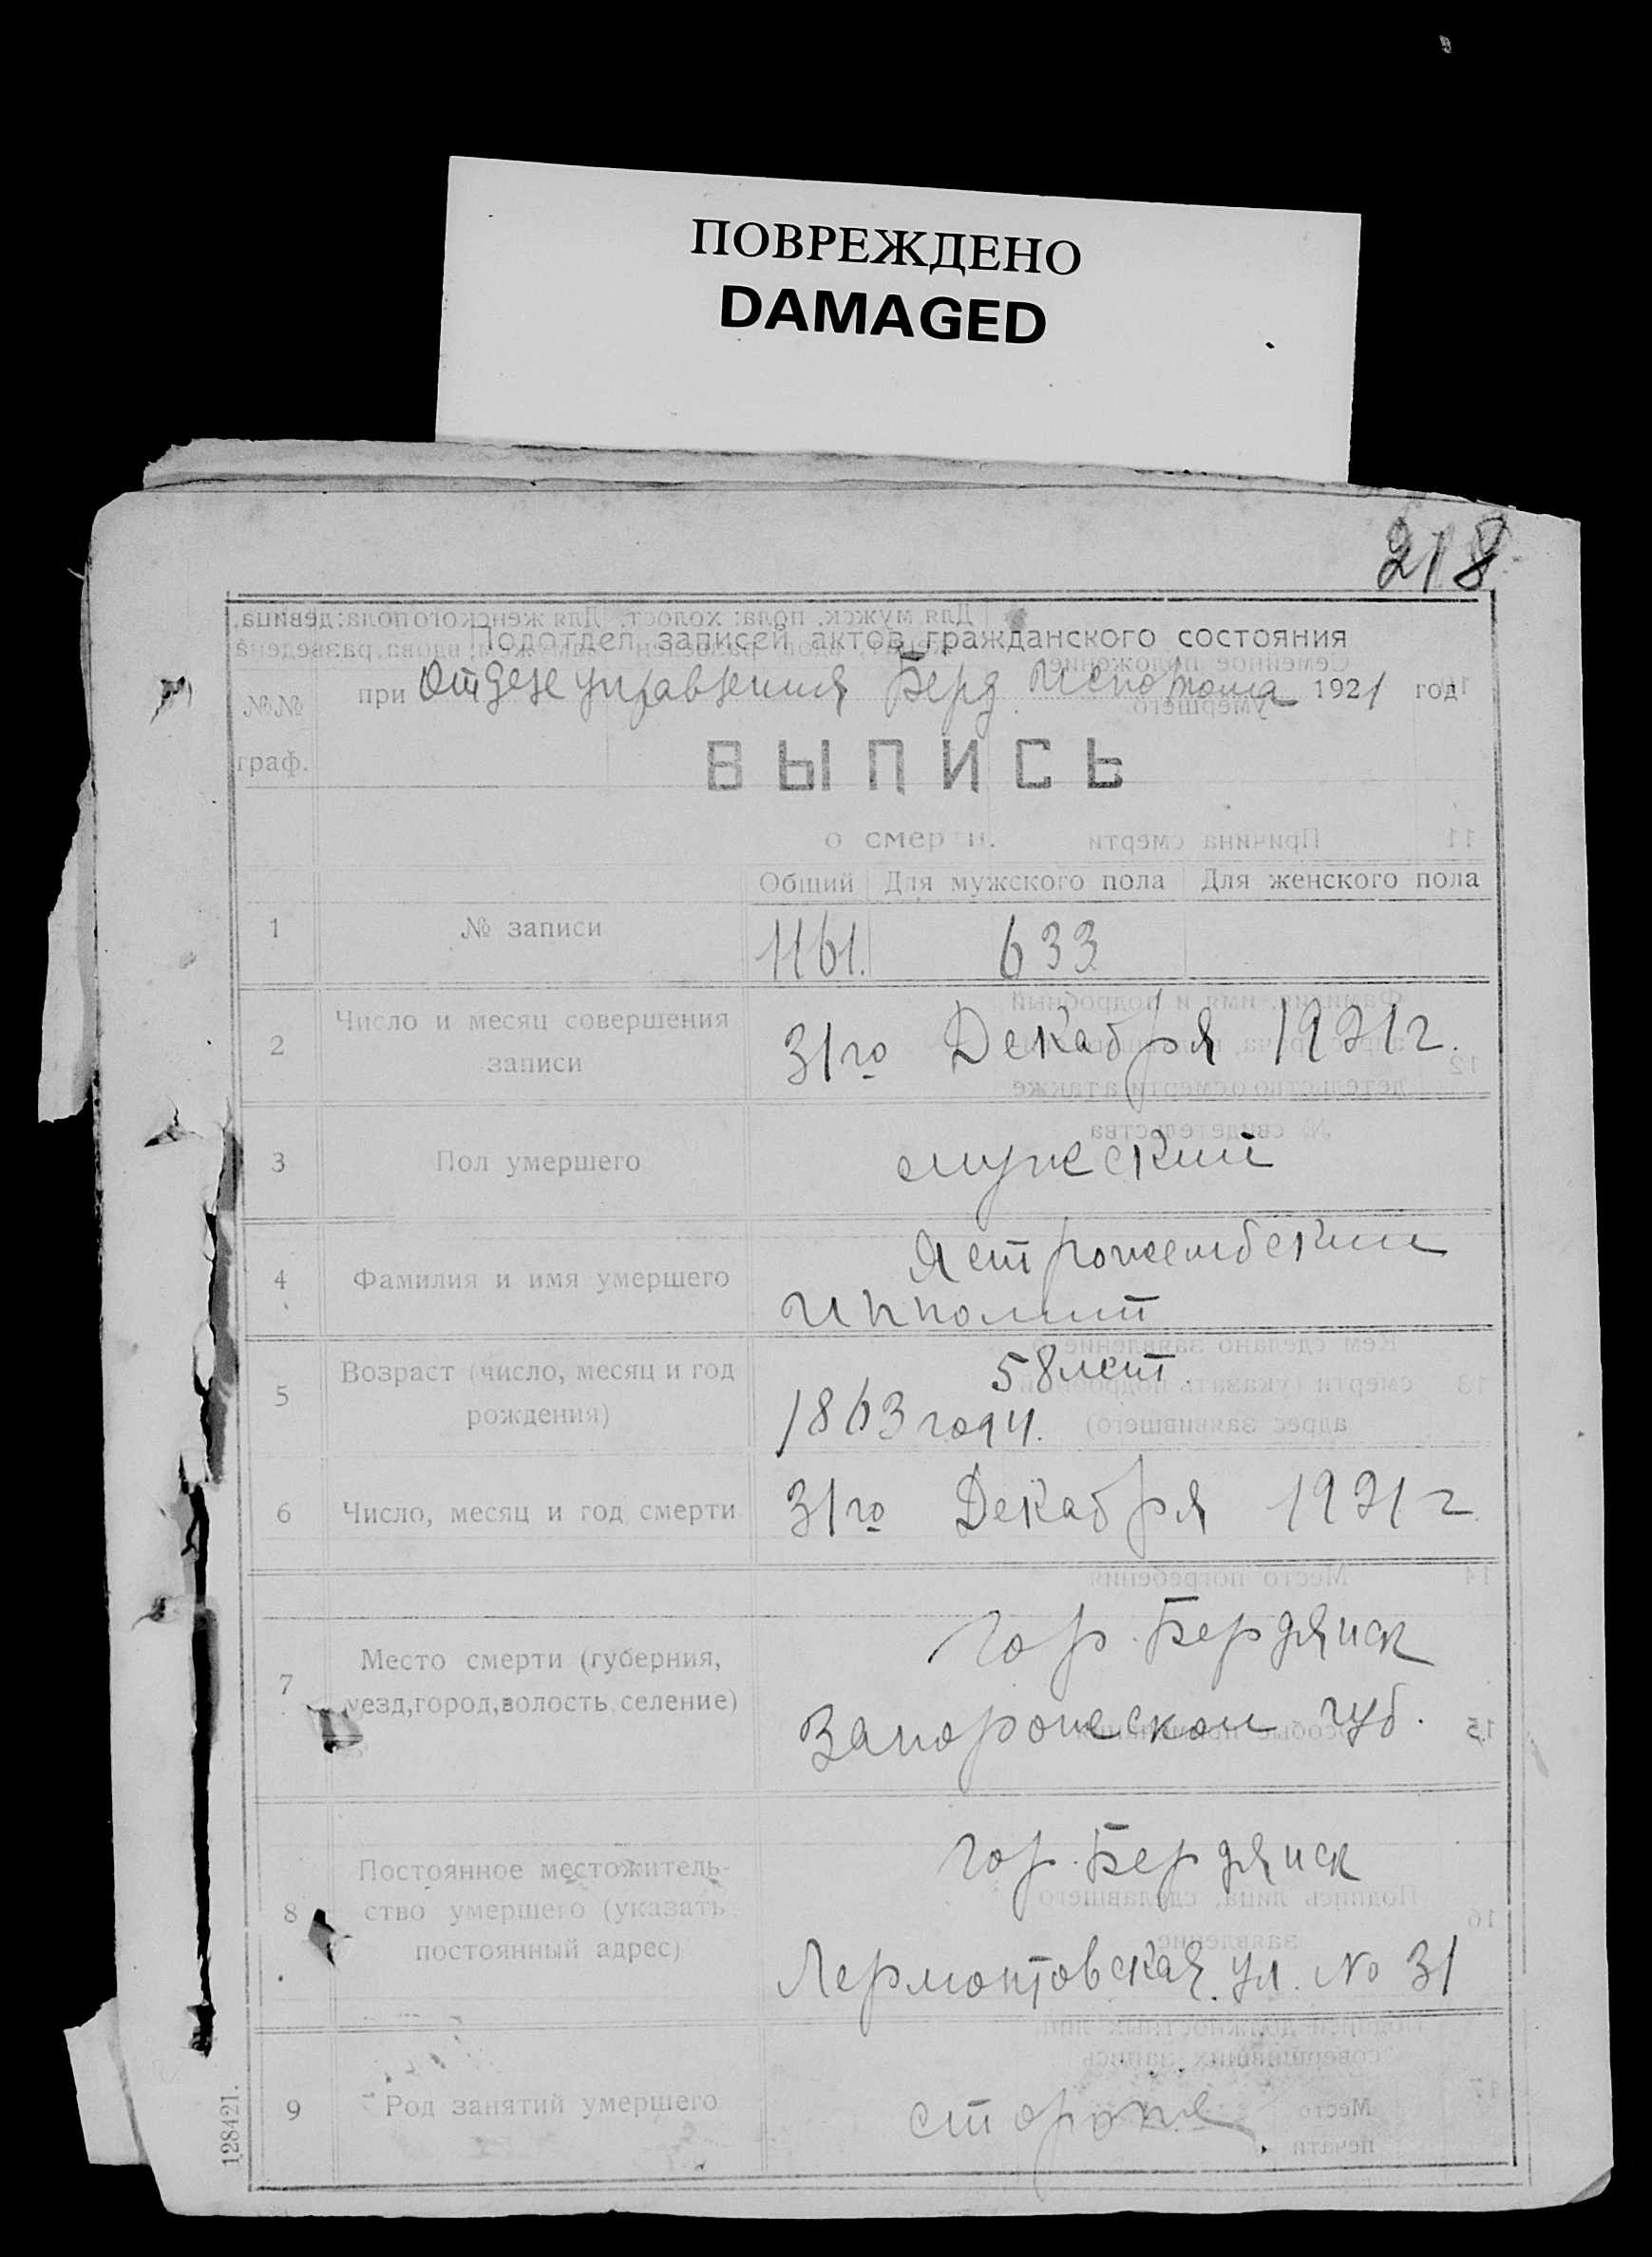 ПОВРЕЖДЕНО
DAMAGED
218
Подотдел записей актов гражданского состояния
при Отделе управления Берд. Исполкома 1921 год
№№
граф.
ВЫПИСЬ
о смерти.
Общий Для мужского пола Для женского пола
1 № записи 1161. 633
2 Число и месяц совершения
записи
31го Декабря 1921 г.
3 Пол умершего мужеский
4 Фамилия и имя умершего
Ястрожембский
Ипполит
5 Возраст (число, месяц и год
рождения)
58 лет.
1863 году.
6 Число, месяц и год смерти 31го Декабря 1921 г
7 Место смерти (губерния,
уезд, город, волость, селение)
гор. Бердянск
Запорожской губ.
8 Постоянное местожитель-
ство умершего (указать
постоянный адрес)
гор. Бердянск
Лермонтовская ул. № 31
9 Род занятий умершего сторож
128421.